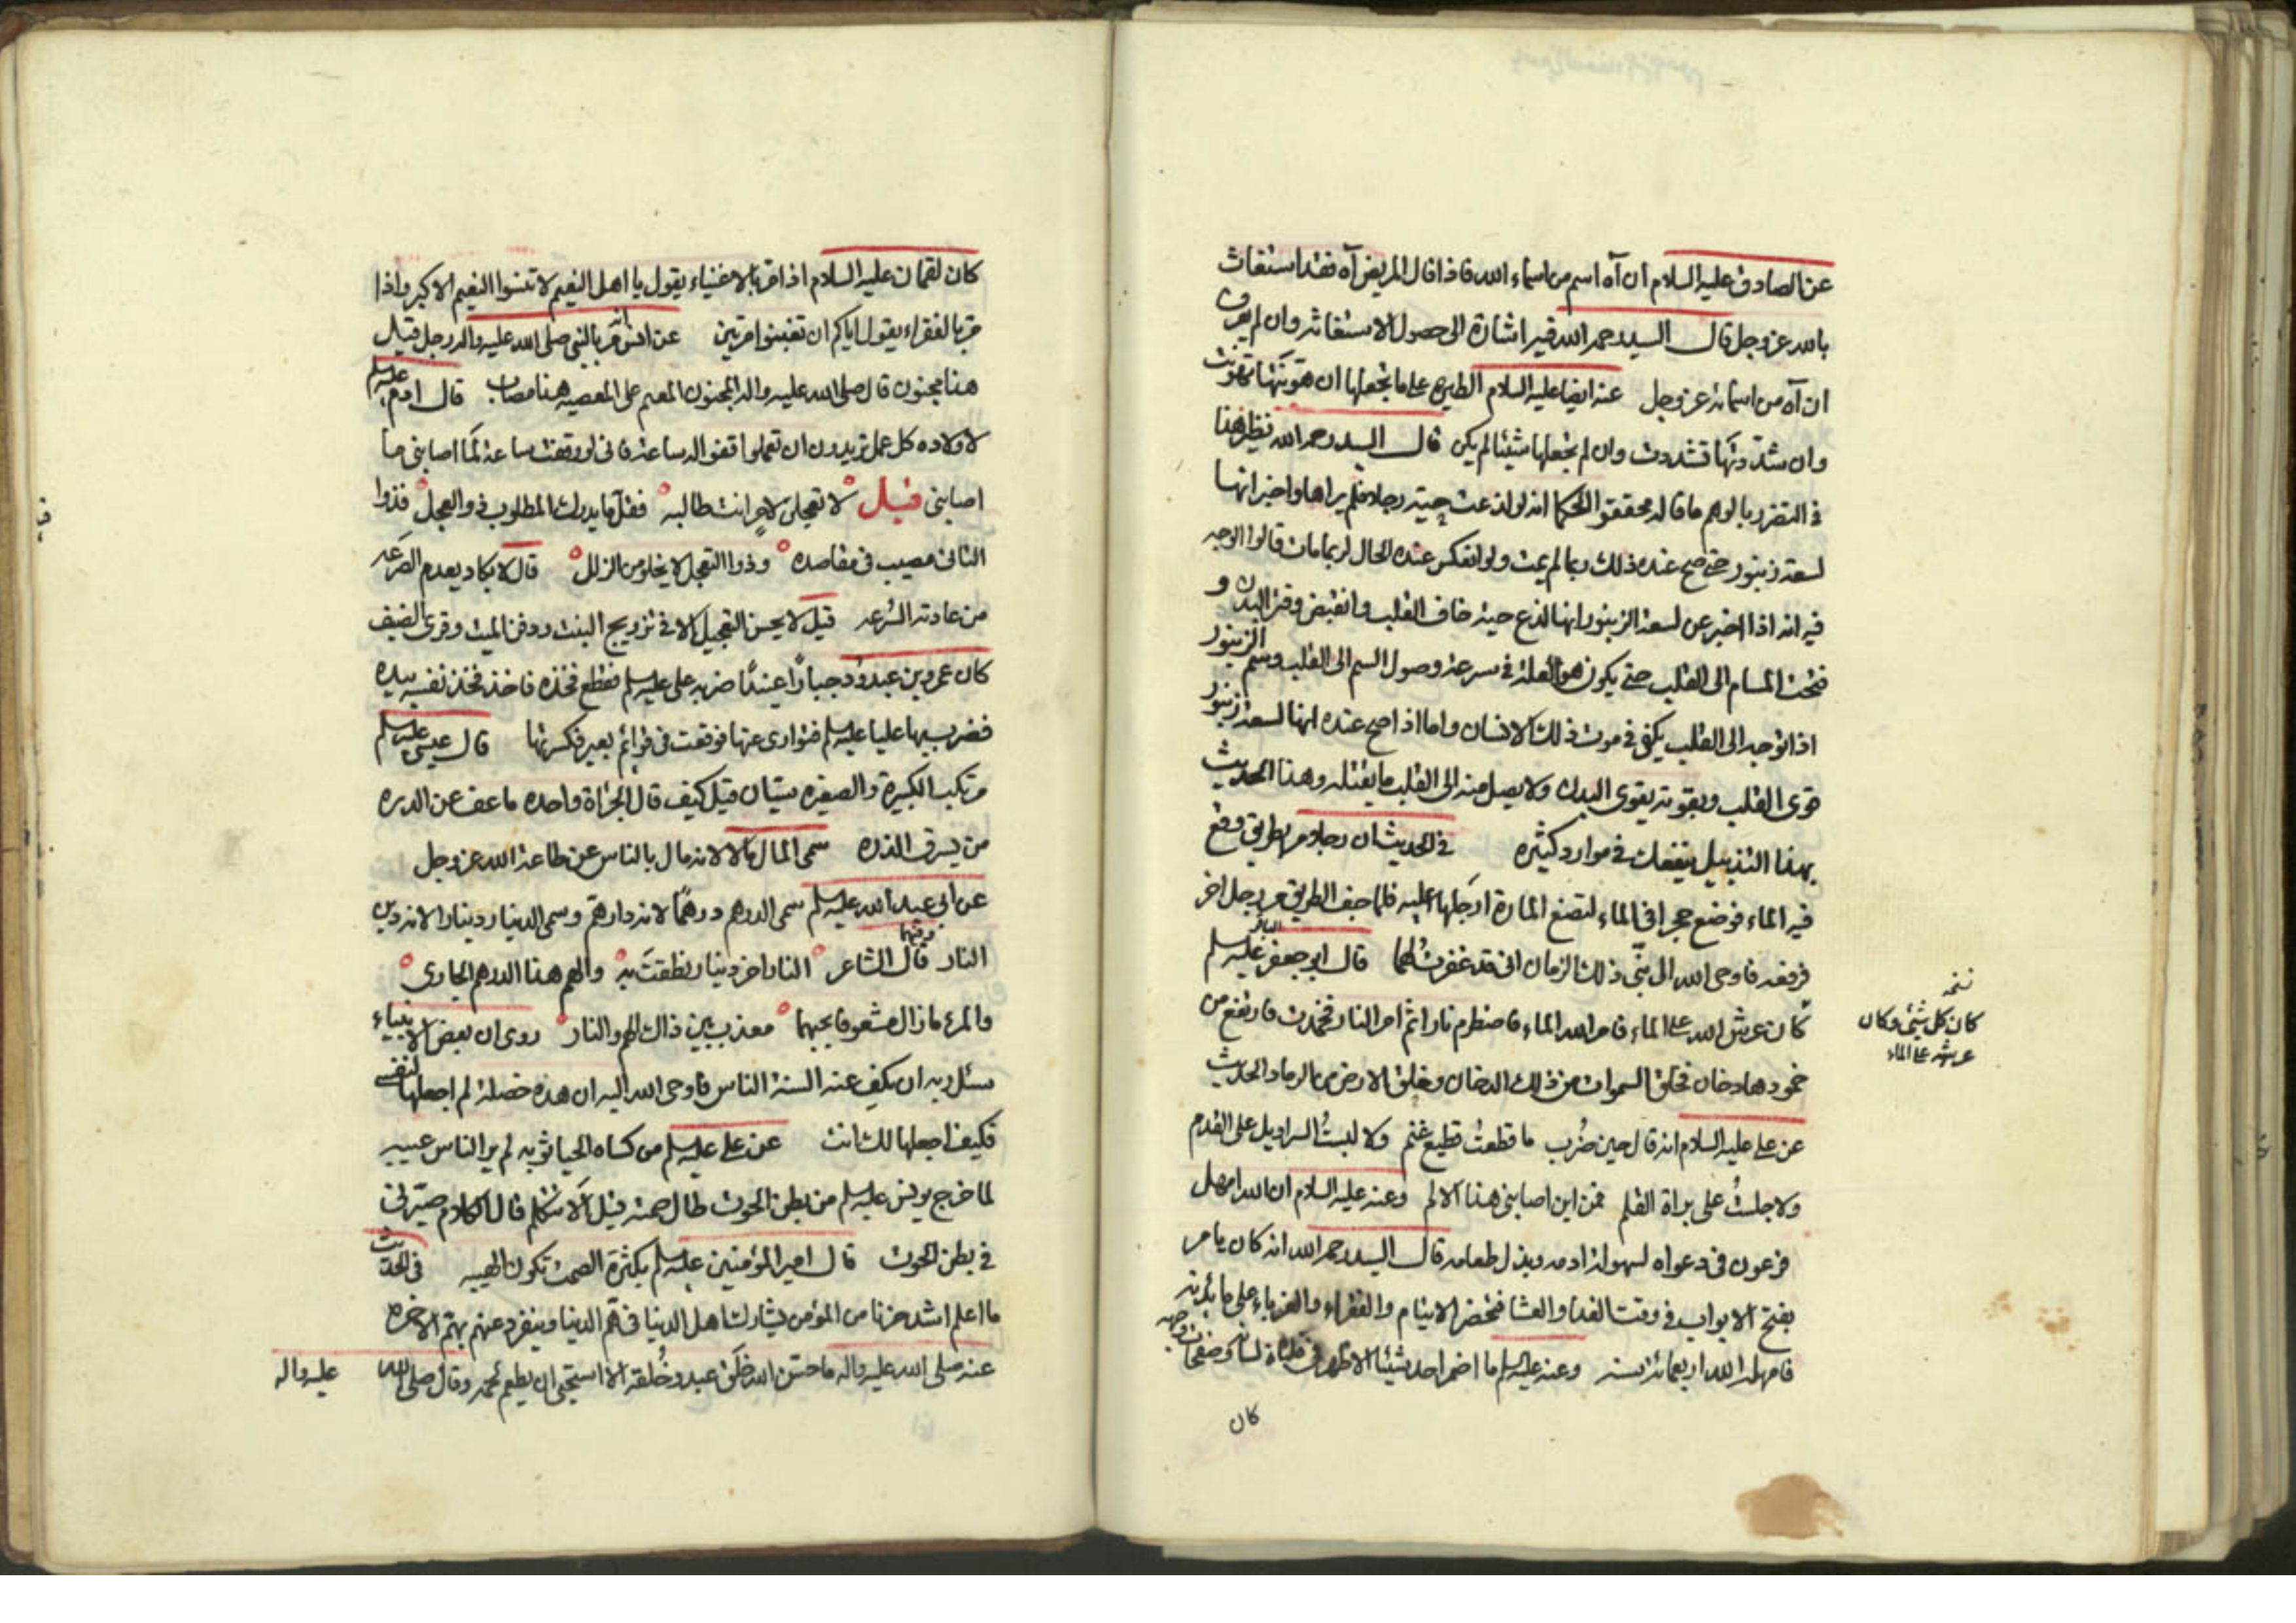 عن الصادق عليه السلام ان آه اسم من اسماء الله فاذا قال المريض آه فقد استغاث
بالله عز وجل قال السيد رحمه الله فيه اشارة الى حصول الاستغاثه وان لم يعرف
ان آه من اسمائه عز وجل عنه ايضا عليه السلام الطيره على ما تجعلها ان هونتها تهونت
وان شددتها تشددت وان لم تجعلها شيئا لم يكن قال السيد رحمه الله نظير هذا
في التضرر بالوهم ما قاله محققوا الحكما انه لو لذعت حية رجلا فلم يراها واخبر انها
لسعة زنبور حتى صح عنده ذلك ربما لم يمت ولو انعكس عنده الحال لربما مات قالوا الوجه
فيه انه اذا اخبر عن لسعة الزنبور انها لذع حية خاف القلب وانقبض وفتر البدن و
فتحت المسام الى القلب حتى يكون هو العلة في سرعة وصول السم الى القلب وسم الزنبور
اذا توجه الى القلب يكفي في موت ذلك الانسان واما اذا صح عنده انها لسعة زنبور
قوى القلب وبقوته يقوى البدن ولا يصل منه الى القلب ما يقتله وهذا الحديث
بهذا التذييل ينفعك في موارد كثيره في الحديث ان رجلا مر بطريق وقع
فيه الماء فوضع حجرا في الماء لتضع المارة ارجلها عليه فلما جف الطريق مر رجل اخر
فرفعه فاوحى الله الى نبي ذلك الزمان اني قد غفرت لهما قال ابو جعفر الباقر عليه السلم
كان عرش الله على الماء فامر الله الماء فاضطرم نارا ثم امر النار فخمدت فارتفع من
خمودها دخان فخلق السموات من ذلك الدخان وخلق الارض من الرماد الحديث
عن علي عليه السلام انه قال حين ضرب ما قطعت قطيع غنم ولا لبست السراويل على القدم
ولا جلست على براة القلم فمن اين اصابني هذا الالم وعنه عليه السلام ان الله امهل
فرعون في دعواه لسهولة اذنه وبذل طعامه قال السيد رحمه الله انه كان يامر
بفتح الابواب في وقت الغدا والعشا فتحضر الايتام والفقراء والغرباء على مائدته
فامهله الله اربعمائة سنه وعنه عليه السلم ما اضمر احد شيئا الا ظهر في فلتات لسانه وصفحات وجهه
كان
نسخه
كان كل شئ وكان
عرشه على الماء
كان لقمان عليه السلام اذا مر بالاغنياء يقول يا اهل النعيم لا تنسوا النعيم الاكبر واذا
مر بالفقراء يقول اياكم ان تغبنوا مرتين عن انس انه مر بالنبي صلى الله عليه واله رجل فقيل
هذا مجنون قال صلى الله عليه واله المجنون المقيم على المعصيه هذا مصاب قال ادم عليه السلم
لاولاده كل عمل تريدون ان تعملوا قفوا له ساعة فاني لو وقفت ساعة لما اصابني ما
اصابني قيل لا تعجلن لامر انت طالبه فقلما يدرك المطلوب ذو العجل فذوا
التاني مصيب في مقاصده وذوا التعجل لا يخلو من الزلل قال لا يكاد يعدم الصرعه
من عادته السرعه قيل لا يحسن التعجيل الا في تزويج البنت ودفن الميت وقرى الضيف
كان عمرو بن عبدود جبارا عنيدا ضربه علي عليه السلم فقطع فخذه فاخذ فخذ نفسه بيده
فضرب بها عليا عليه السلم فتوارى عنها فوقعت في قوائم بعير فكسرتها قال عيسى عليه السلم
مرتكب الكبيرة والصغيره سيان قيل كيف قال الجراة واحده ما عف عن الدره
من يسرق الذره سمي المال مالا لانه مال بالناس عن طاعة الله عز وجل
عن ابي عبد الله عليه السلم سمي الدرهم درهما لانه دار هم وسمي الدينار دينارا لانه دين
النار قال الشاعر وفيهما النار اخر دينار نطقت به والهم هذا الدرهم الجاري
والمرء ما زال مشعوفا بحبهما معذب بين ذاك الهم والنار روى ان بعض الانبياء
سئل ربه ان يكف عنه السنة الناس فاوحى الله اليه ان هذه خصلة لم اجعلها لنفسي
فكيف اجعلها لك انت عن علي عليه السلم من كساه الحيا ثوبه لم ير الناس عيبه
لما خرج يونس عليه السلم من بطن الحوت طال صمته فقيل الا تتكلم قال الكلام صيرني
في بطن الحوت قال امير المؤمنين عليه السلم بكثرة الصمت تكون الهيبه في الحديث
ما اعلم اشد حزنا من المؤمن يشارك اهل الدنيا في هم الدنيا وينفرد عنهم بهم الاخره
عنه صلى الله عليه واله ما حسن الله خلق عبد وخلقه الا استحيى ان يطعم لحمه وقال صلى الله عليه واله